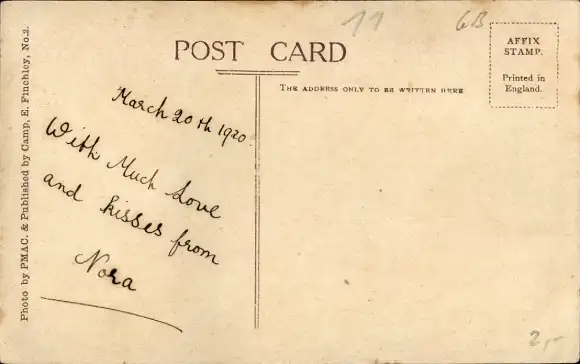 11
6B
POST CARD
AFFIX
STAMP.
Printed in
England.
THE ADDRESS ONLY TO BE WRITTEN HERE
March 20th 1920.
With Much Love
and kisses from
Nora
Photo by PMAC. & Published by Camp, E. Finchley, No.2.
2,-